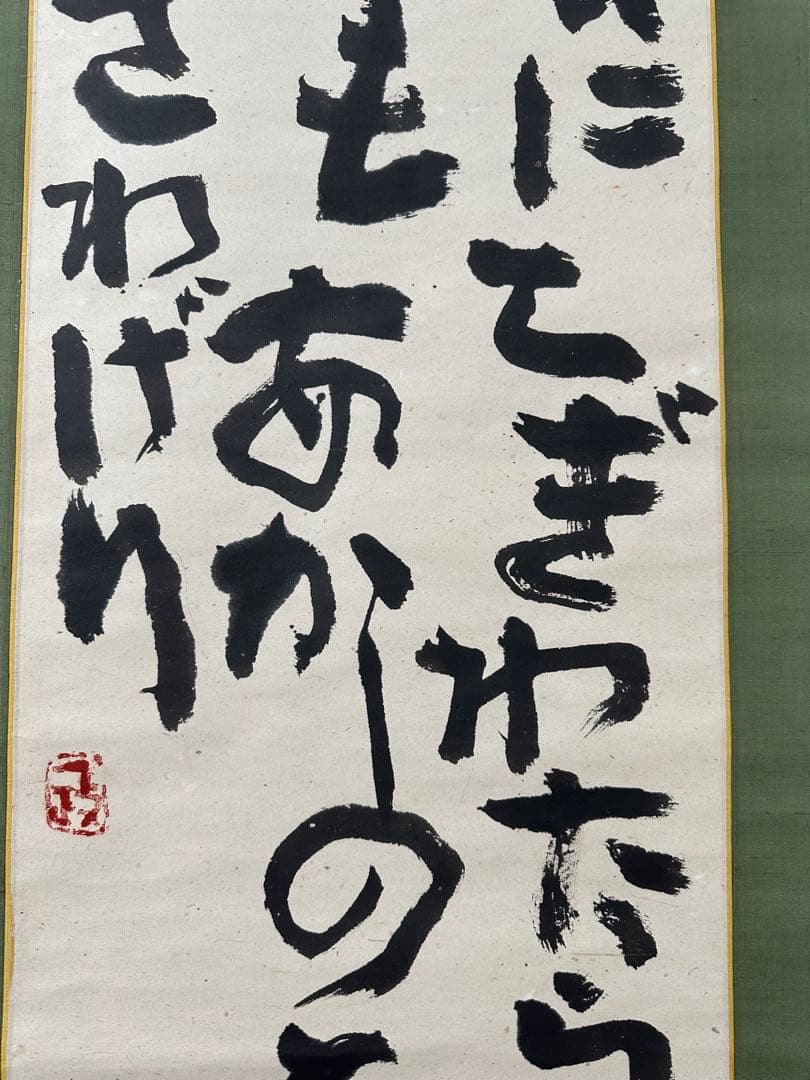 にこぎわたら
もあかしの
さわげり